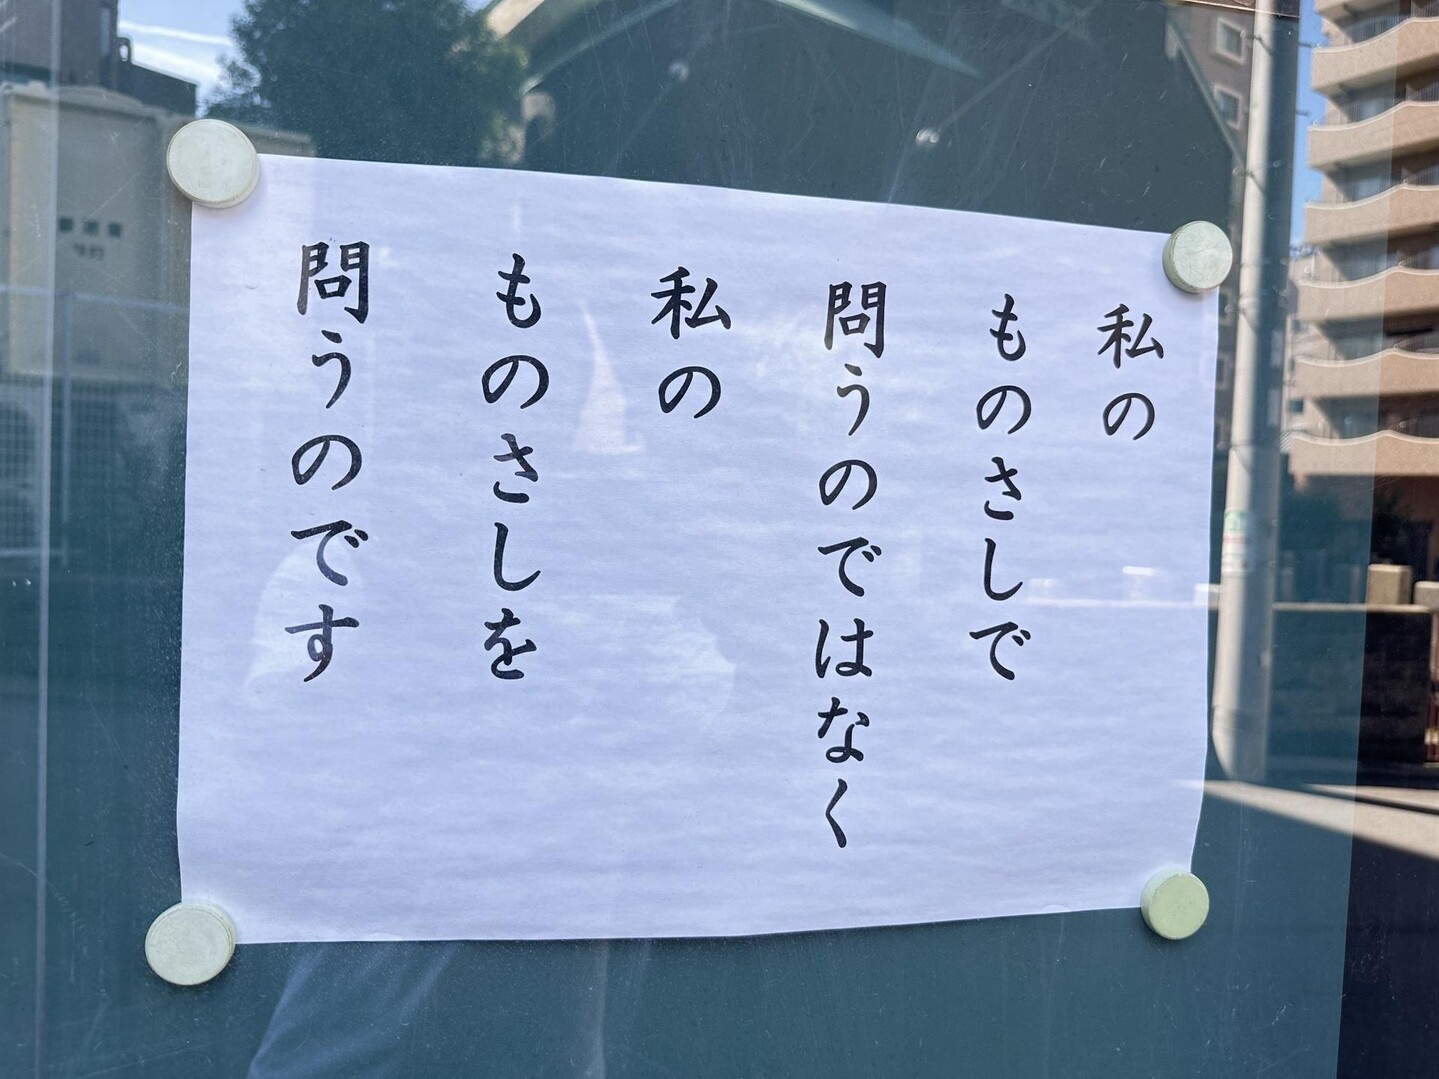 私の
ものさしで
問うのではなく
私の
ものさしを
問うのです